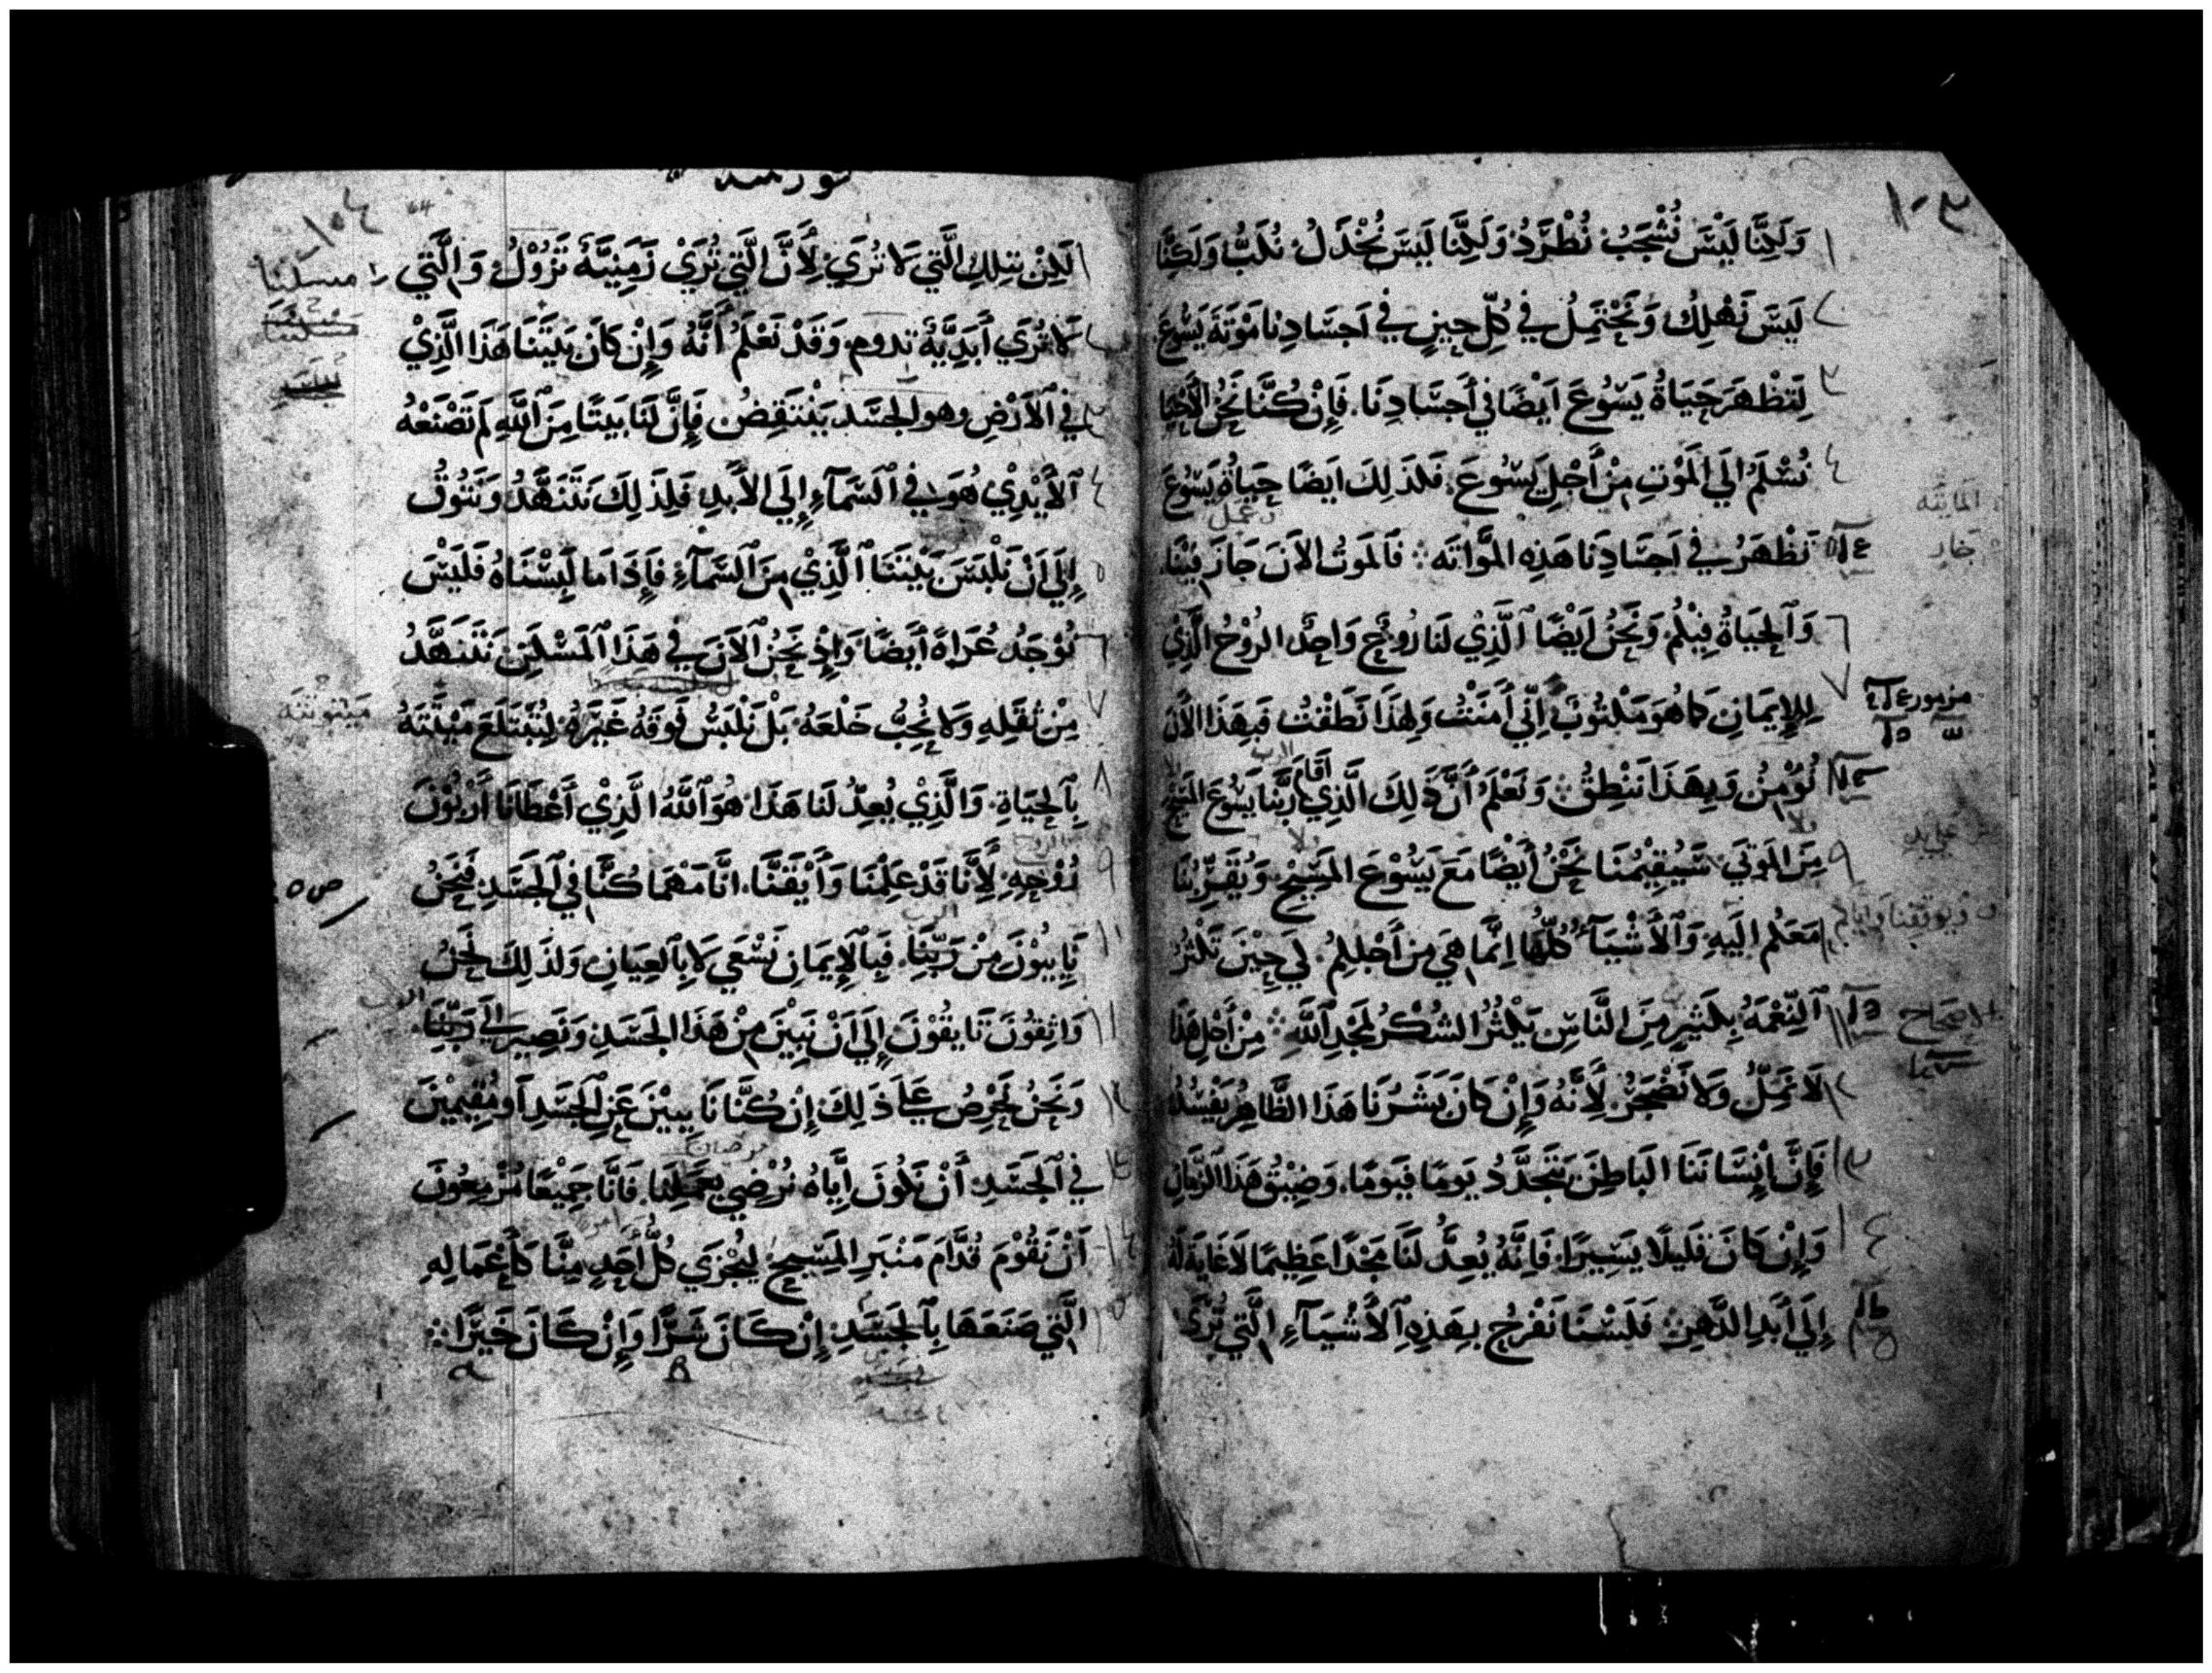 ١٠٣
١ وَلَكِنَّا لَيْسَ نُشْجَبُ نُطْرَدُ وَلَكِنَّا لَيسَ نُخْذَلُ نُكَبُّ وَلَكِنَّا
٢ لَيسَ نَهْلِكُ وَنَحْتَمِلُ في كُلِّ حِينٍ في اَجسَادِنا مَوْتَةَ يَسُوعَ
٣ لِتَظْهَرَ حَيَاةُ يَسُوعَ اَيْضًا في أَجسَادِنَا. فَإِنْ كُنَّا نَحْنُ الأَحْيَا
٤ نُسْلَمُ الَي المَوْتِ مِنْ أَجْلِ يَسُوعَ. فَلذَلِكَ اَيضًا حيَاةُ يَسُوعَ
٥ تَظْهَرُ في اَجسَادِنا هَذِهِ المَوَّاتَه ፨ فَالمَوتُ الاَنَ جَازَ فِيْنَا.
٦ وَٱلحَيَاةُ فِيْكُمْ وَنَحْنُ اَيْضًا ٱلَّذِيْ لَنَا رُوحٌ وَاحِدٌ الرُوْحُ الَّذِيْ
٧ لِلإِيمَانِ كَمَا هُوَ مَكْتُوبٌ إِنِّي أَمَنْتُ وَلِهَذَا نَطَقْتُ فَبِهَذَا الأَنَ
مزمور
نُؤْمِنُ وَبِهَذَا نَنْطِقُ ፨ وَنَعْلَمُ أَنَّ ذَلِكَ الَّذِي أَقَامَ رَبَّنا يَسُوعَ المَسِيْحَ
٩ مِنَ المَوتَي سَيُقِيْمُنَا نَحْنُ أَيْضًا مَعَ يَسُوْعَ المَسِيْحِ وَيُقَرِّبُنَا
مَعَكُم اِلَيهِ وَٱلأَشْيَآءُ كُلُّهَا اِنَّمَا هَيَ مِن أَجْلِكُمْ. لَي حِيْنَ تَكْثُرُ
١١ ٱلنِّعْمَةُ بِكَثِيرٍ مِنَ النَّاسِ يَكْثُرُ الشُكْرُ لِمَجْدِ ٱللَّهِ ፨ مِنْ أَجْلِ هَذَا
الاصحاح
١٢ لاَ نَمَلُّ وَلاَ نَضْجَرُ لأَنَّهُ وَإِنْ كَانَ بَشَرُنَا هَذَا الظَّاهِرُ يَفْسُدُ
١٣ فَإِنَّ إِنْسَانَنَا البَاطِنَ يَتَجَدَّدُ يَومًا فَيَومًا. وَضِيْقُ هَذَا الزَّمَانِ
١٤ وَإِنْ كَانَ قَلِيلًا يَسِيرًا فَاِنَّهُ يُعِدُّ لَنَا مَجْدًا عَظِيمًا لاَ غَايَةَ لَهُ
١٥ إِلَي أَبَدِ الدَّهِرِ ፨ فَلَسْنَا نَفْرَحُ بِهَذِهِ ٱلأَشْيَآءِ الَّتِي تُرَيَ
١٠٤
64
١ لَكِنْ بِتِلكِ الَّتِي لاَ تُرَي لأَنَّ الَّتِي تُرَيْ زَمِنِيَّةٌ تَزُوْلُ وَالَّتِي
مسكننا
٢ لاَ تُرَي أَبَدِيَّةٌ تدوم وَقَدْ نَعْلَمُ أَنَّهُ وَإِنْ كَانَ بَيتُنَا هَذَا الَّذِيْ
٣ في ٱلأَرْضِ وهو الجسَد يَنْتَقِضُ فَإِنَّ لَنَا بَيتًا مِنَ ٱللَّهِ لَم تَصْنَعْهُ
٤ ٱلأَيْدِيْ هُوَ في ٱلسَّمَآءِ إِلَي الأَبدِ فَلِذَلِكَ نَتَنَهَّدُ وَنَتُوقُ
٥ إِلَي أَنْ نَلْبَسَ بَيْتَنَا ٱلَّذِيْ مِنَ ٱلسَّمَآءِ فَإِذَا مَا لَبِسْنَاهُ فَلَيْسَ
٦ نُوْجَدُ عُرَاةً أَيضًا وَإِذْ نَحْنُ ٱلاَنَ في هَذَا ٱلمَسْكَنِ نَتَنَهَّدُ
٧ مِنْ ثِقَلِهِ وَلاَ نُحِبُّ خَلْعَهُ بَلْ نَلْبَسُ فَوقَهُ غَيرَهُ لِتُبْتَلَعَ مَيْتَتَهُ
٨ بِٱلحَيَاةِ. وَالَّذِيْ يُعِدُّ لَنا هَذَا هُوَ ٱللَّهُ الَّذِيْ أَعْطَانَا أُرْبُوْنَ
٩ رُوْحِهِ لأَنَّا قَدْ عَلِمْنَا وَأَيْقَنَّا. انَّا مَهْمَا كُنَّا في ٱلجَسَدِ فَنَحْنُ
نَايِيُوْنَ مِنْ رَبِّنَا. فَبِالإِيمَانِ نَسْعَي لاَ بِٱلعِيَانِ وَلذَلِكَ نَحْنُ
١١ وَاثِقُونَ تَايِقُوْنَ إِلَي أَنْ نَبِيْنَ مِنْ هَذَا الجَسَدِ وَنَصِيرَ إِلَي رَبِّنَا.
١٢ وَنَحْنُ نَحْرِصُ عَلَي ذَلِكَ إِنْ كُنَّا نَايِيِيْنَ عَنِ ٱلجَسَدِ أَو مُقِيْمِيْنَ
في ٱلجَسَدِ أَنْ نَكُونَ إِيَّاهُ نُرْضِي بِعَمَلِنَا. فَاَنَّا جَمِيْعًا مُزْمِعُونَ
١٤ أَنْ نَقُوْمَ قُدَّامَ مَنْبَرِ المَسِيحِ لِيُجْزَي كُلُّ أَحَدٍ مِنَّا كَأَعْمَالِهِ
الَّتِي صَنَعَهَا بِٱلجَسَدِ إِنْ كَانَ شَرًّا وَإِنْ كَانَ خَيرًا ፨